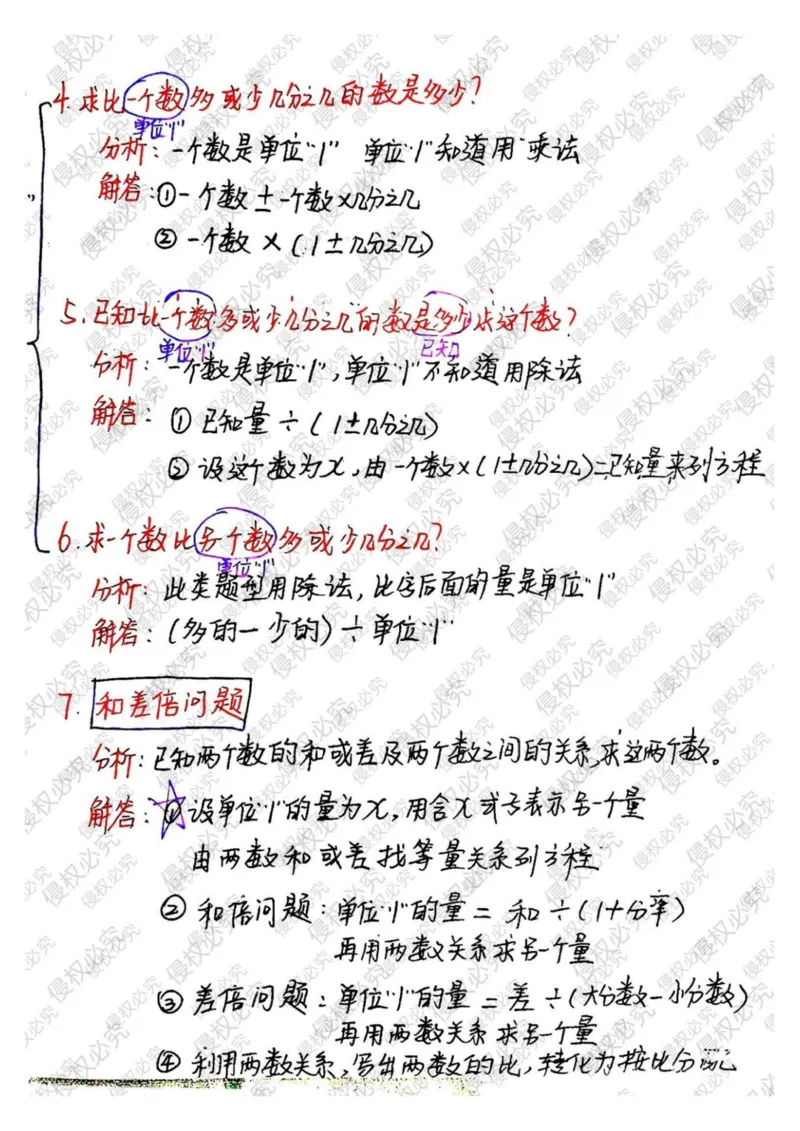 4.求比一个数多或少几分之几的数是多少?
单位"1"
分析:一个数是单位"1" 单位"1"知道用乘法
解答:①一个数±一个数×几分之几
②一个数×(1±几分之几)
5.已知比一个数多或少几分之几的数是多少求这个数?
单位"1" 已知
分析:一个数是单位"1",单位"1"不知道用除法
解答:①已知量÷(1±几分之几)
②设这个数为x,由一个数×(1±几分之几)=已知量来列方程
6.求一个数比另个数多或少几分之几?
单位"1"
分析:此类题型用除法,比字后面的量是单位"1"
解答:(多的-少的)÷单位"1"
7.和差倍问题
分析:已知两个数的和或差及两个数之间的关系,求这两个数。
解答:①设单位"1"的量为x,用含x式子表示另一个量
由两数和或差找等量关系列方程
②和倍问题:单位"1"的量=和÷(1+分率)
再用两数关系求另一个量
③差倍问题:单位"1"的量=差÷(大分数-小分数)
再用两数关系求另一个量
④利用两数关系,写出两数的比,转化为按比分配
侵权必究